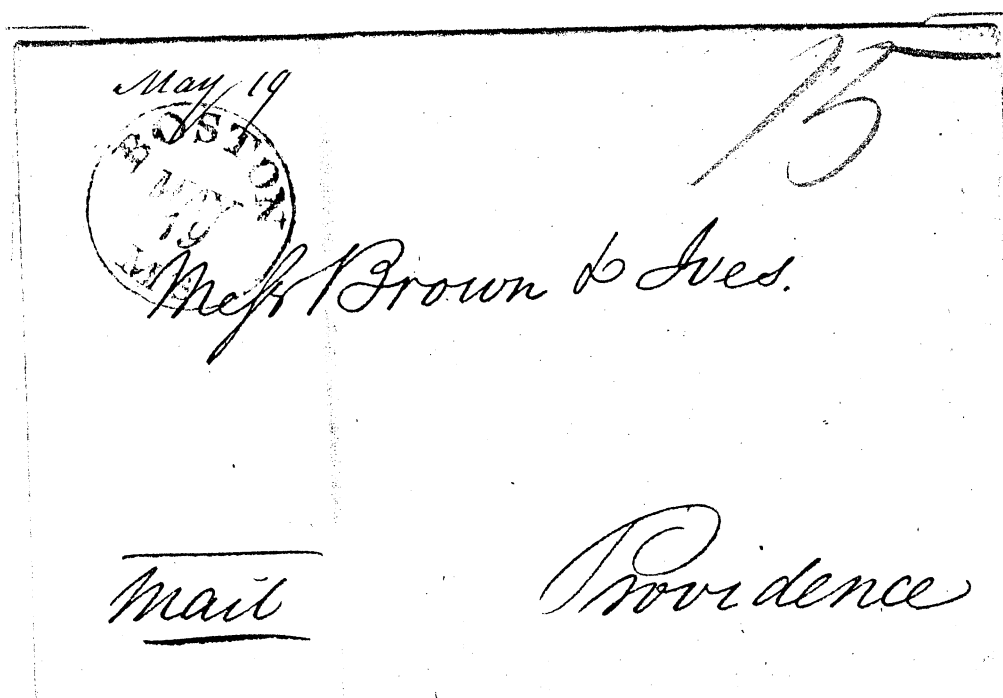 May 19
15
BOSTON
MAY
19
MS
Messrs Brown & Ives.
Mail
Providence